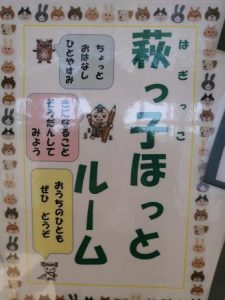 はぎっこ
萩っ子ほっと
ルーム
ちょっと
おはなし
ひとやすみ
きになること
そうだんして
みよう
おうちのひとも
ぜひ どうぞ